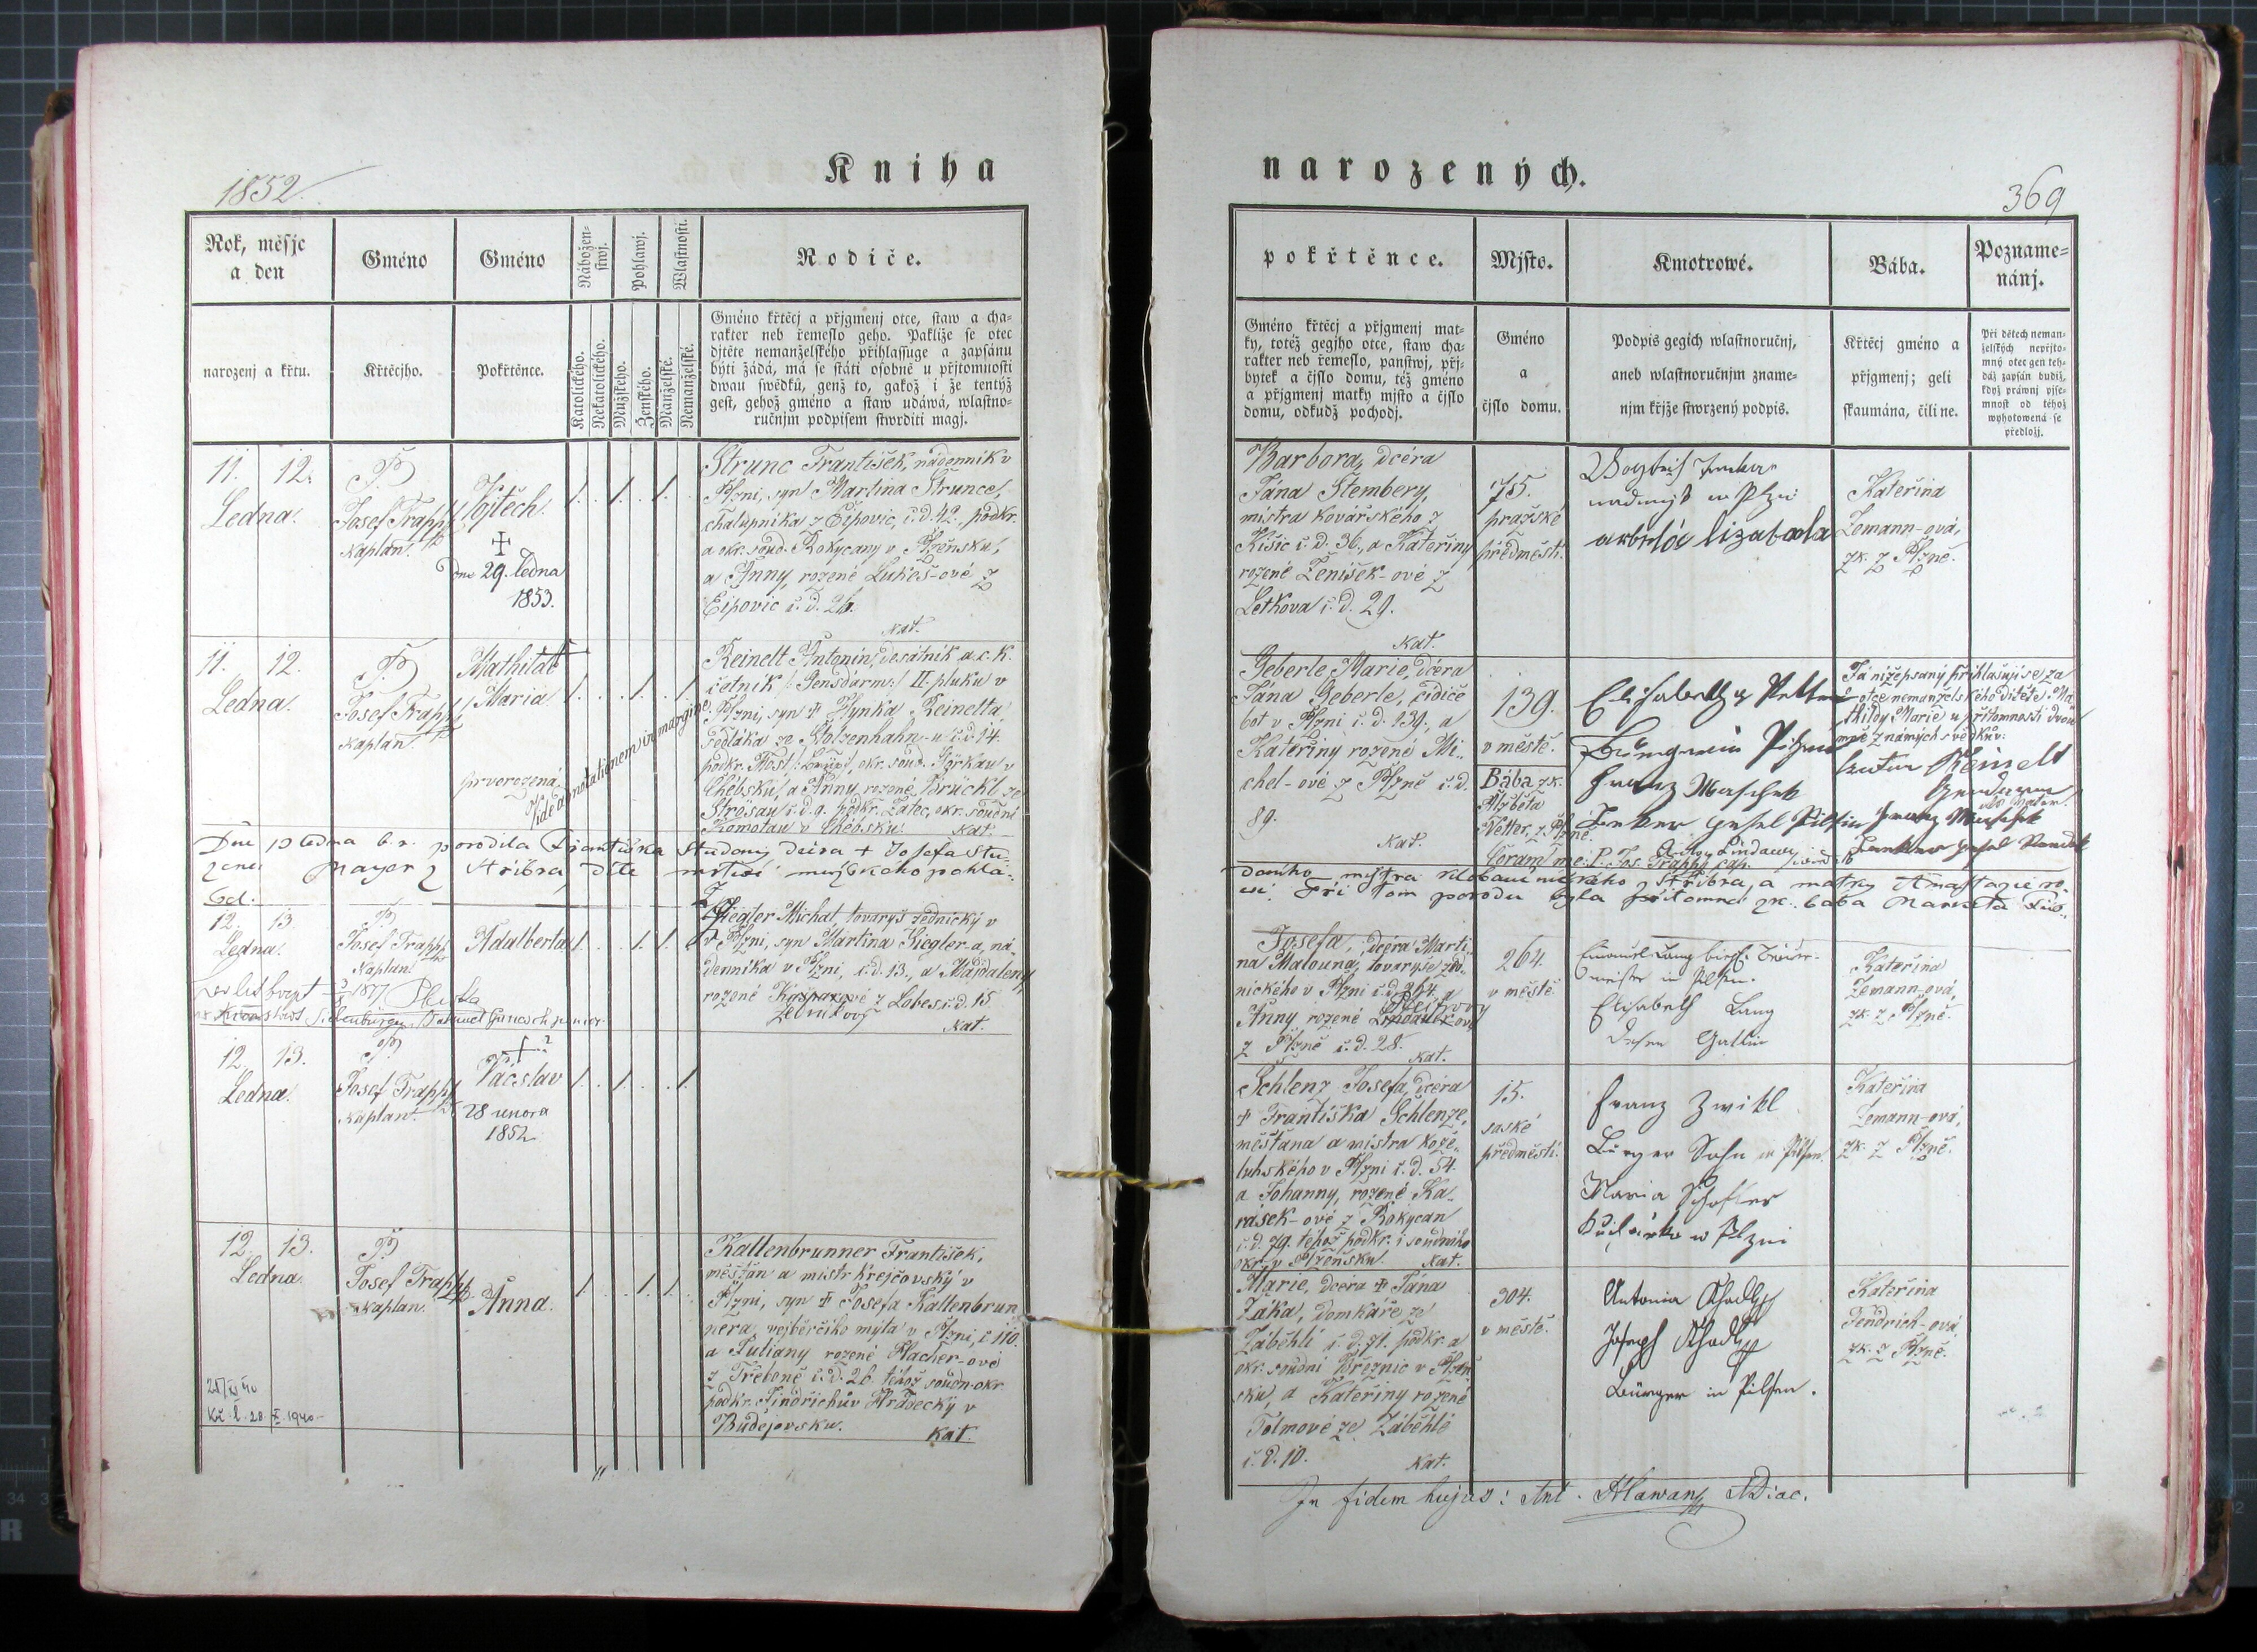 1852
Kniha
Rok, měsjc
a den
Gméno
Gméno
Nábožen-
stwj.
Pohlawj.
Wlastnosti.
Rodiče.
narozenj a křtu.
Křtěcjho.
Pokřtěnce.
Katolického.
Nekatolického.
Mužského.
Ženského.
Manželské.
Nemanželské.
Gméno křtěcj a přjgmenj otce, staw a cha-
rakter neb řemeslo geho. Pakliže se otec
djtěte nemanželského přihlassuge a zapsánu
býti žádá, má se státi osobně u přjtomnosti
dwau swědků, genž to, gakož i že tentýž
gest, gehož gméno a staw udáwá, wlastno-
ručnjm podpisem stwrditi magj.
11. 12.
Ledna.
P.
Josef Trappl
Kaplan.
Vojtěch.
Dne 29. ledna
1853.
Strunc František, nádenník v
Plzni, syn Martina Strunce,
chalupníka z Eipovic, č.d. 42., podkr.
a okr. soud. Rokycany v Plzeňsku,
a Anny, rozené Lukeš-ové z
Eipovic č.d. 26.
Kat.
11. 12.
Ledna.
P.
Josef Trappl
Kaplan.
Mathilda
Maria
prvorozená.
Vide adnotationem in margine.
Reinelt Antonín, desátník, a c. k.
četník /: Gensdarm :/ II. pluku v
Plzni, syn Hynka Reinelta,
sedláka ze Stolzenhahn-u č.d. 14.
podkr. Most, okr. soud. Görkau v
Chebsku, a Anny, rozené Brückl ze
Strösau č.d. 9. podkr. Žatec, okr. soudní
Komotau v Chebsku. Kat.
Dne ledna b.r. porodila Františka Studený dcera Josefa Stu-
zené Mayer z Stříbra, dítě mrtvé mužského pohla-
12. 13.
Ledna.
P.
Josef Trappl
Kaplan.
Adalberta
Ziegler Michal, tovaryš zednický v
v Plzni, syn Martina Ziegler-a, ná-
denníka v Plzni, č.d. 13., a Majdaleny,
rozené Kašparové z Lobes č.d. 15
Kat.
12. 13.
Ledna.
P.
Josef Trappl
Kaplan.
Václav
28 února
1852
12. 13.
Ledna.
P.
Josef Trappl
Kaplan.
Anna.
Kaltenbrunner František,
měšťan a mistr krejčovský v
Plzni, syn Josefa Kaltenbrun
nera, vejběrčího mýta v Plzni, č. 110.
a Juliany rozené Placher-ové
z Třeboně č.d. 26. téhož soudn. okr.
podkr. Jindřichův Hradecký v
Budějovsku. Kat.
narozených.
369
pokřtěnce.
Mjsto.
Kmotrowé.
Bába.
Pozname-
nánj.
Gméno křtěcj a přjgmenj mat-
ky, totéž gegjho otce, staw cha-
rakter neb řemeslo, panstwj, přj-
bytek a čjslo domu, též gméno
a přjgmenj matky mjsto a čjslo
domu, odkudž pochodj.
Gméno
a
čjslo domu.
Podpis gegich wlastnoručnj,
aneb wlastnoručnjm zname-
njm křjže stwrzený podpis.
Křtěcj gméno a
přjgmenj; geli
skaumána, čili ne.
Při dětech neman-
želských nepřjto-
mný otec gen teh-
dáž zapsán budiž,
když práwnj pjse-
mnost od téhož
wyhotowená se
předložj.
Barbora, dcéra
Jána Stembery,
mistra kovářského z
Kišic č.d. 36., a Kateřiny
rozené Ženíšek-ové z
Letkova č.d. 29.
Kat.
75.
pražské
předměstí.
Kateřina
Zemann-ová,
zk. z Plzně.
Geberle Marie, dcéra
Jána Geberle, cídiče
bot v Plzni č.d. 139., a
Kateřiny rozené Mi-
chel-ové z Plzně č.d.
89.
Kat.
139.
v městě.
Bába zk.
Alžběta
Netter, z Plzně.
Franz Maschek
Já nížepsaný přihlašuji se za
otce nemanželského dítěte Ma-
thildy Marie u přítomnosti dvou
mně známých svědkův:
Anton Reinelt
Gendarm
als Vater.
Franz Maschek
Coram me: P. Jos. Trappl, cap.
daného mistra z Stříbra, a matky Anastazie ro-
ví. Při tom porodu byla přítomna zk. bába Markéta
Josefa, dcéra Marti-
na Malouna, tovaryše zed-
nického v Plzni č.d. 264. a
Anny rozené
z Plzně č.d. 28.
Kat.
264.
v městě.
Elisabeth Lang
dessen Gattin
Kateřina
Zemann-ová,
zk. z Plzně.
Schlenz Josefa, dcéra
Františka Schlenze,
měšťana a mistra kože-
luhského v Plzni č.d. 54.
a Johanny, rozené Ka-
rásek-ové z Rokycan
č.d. 79. téhož podkr. i soudního
okr. v Plzeňsku. Kat.
15.
saské
předměstí.
Franz Zwikl
Bürger Sohn in Pilsen.
Maria
Kateřina
Zemann-ová,
zk. z Plzně.
Marie, dcéra Jána
Žáka, domkáře ze
Záběhlí č.d. 71. podkr. a
okr. soudní Březnic v Plzeň
sku, a Kateřiny rozené
Tolmové ze Záběhlé
č.d. 10. Kat.
304.
v městě.
Antonia
Joseph
Bürger in Pilsen.
Kateřina
Fendrich-ová
zk. z Plzně.
In fidem hujus: Ant. Hlawan